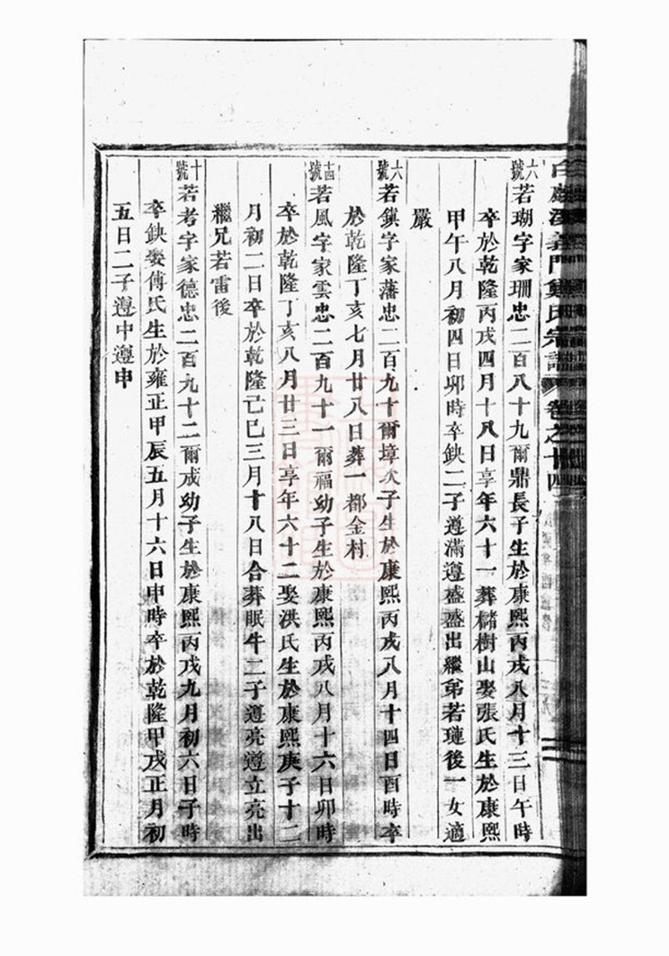 義門鄭氏宗譜 卷之十四
六號 若瑚字家珊忠二百八十九爾鼎長子生於康熙丙戌八月十三日午時
卒於乾隆丙戌四月十八日享年六十一葬櫧樹山娶張氏生於康熙
甲午八月初四日卯時卒缺二子遵滿遵盛盛出繼弟若璉後一女適
嚴
六號 若鎮字家藩忠二百九十爾璋次子生於康熙丙戌八月十四日酉時卒
於乾隆丁亥七月廿八日葬一都金村
十四號 若風字家雲忠二百九十一爾福幼子生於康熙丙戌八月十六日卯時
卒於乾隆丁亥八月廿三日享年六十二娶洪氏生於康熙庚子十二
月初二日卒於乾隆己巳三月十八日合葬眠牛二子遵亮遵立亮出
繼兄若雷後
十號 若考字家德忠二百九十二爾成幼子生於康熙丙戌九月初六日子時
卒缺娶傅氏生於雍正甲辰五月十六日申時卒於乾隆甲戌正月初
五日二子遵中遵申